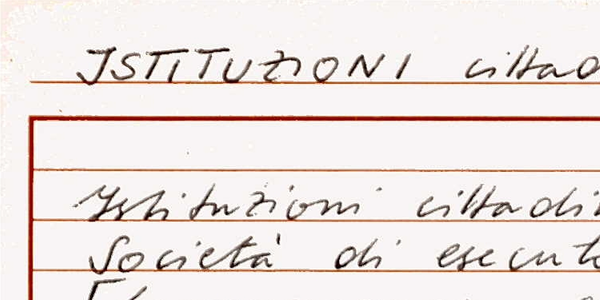 ISTITUZIONI cittad
Istituzioni cittadi
Società di esecut